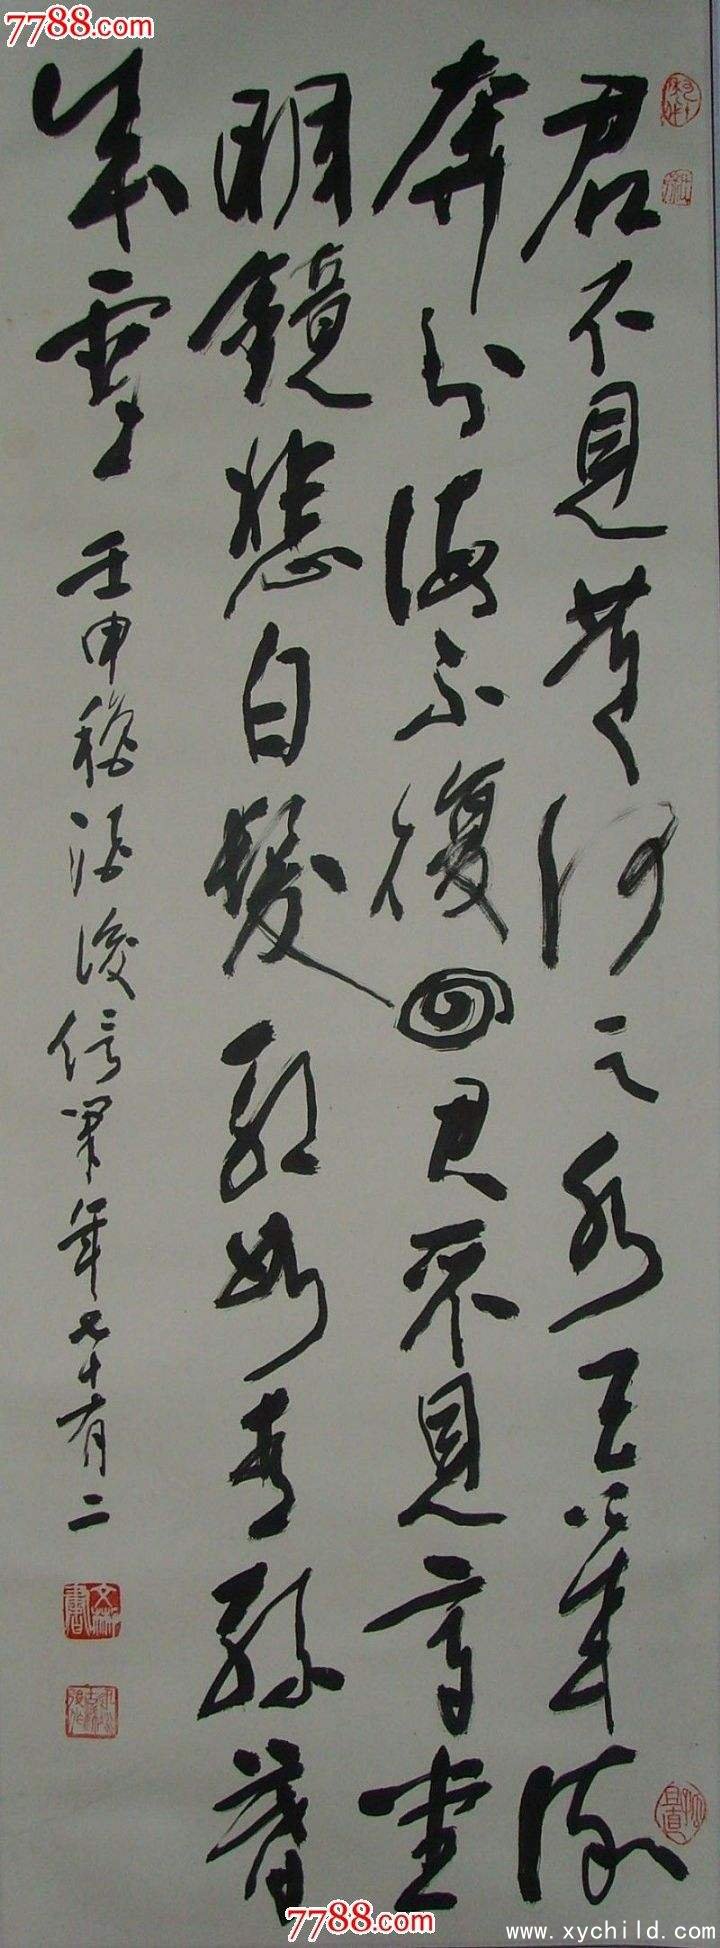 7788.com
君不見黄河之水天上來流
奔到海不復回君不見高堂
明鏡悲白髮朝如青絲暮
成雪
壬申秋酒後信筆年七十有二
7788.com
www.xychild.com